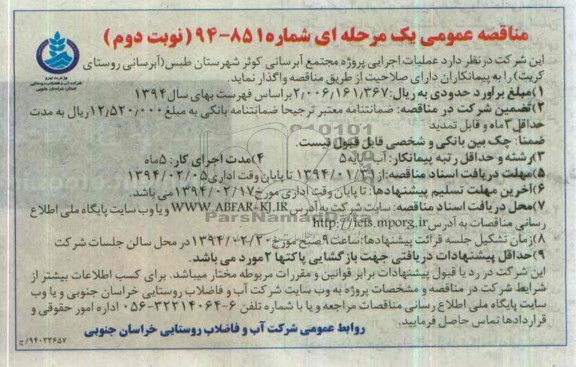 مناقصه عمومی یک مرحله ای شماره ۸۵۱-۹۴ (نوبت دوم)
این شرکت در نظر دارد عملیات اجرایی پروژه مجتمع آبرسانی کوثر شهرستان طبس (آبرسانی روستای
کریت) را به پیمانکاران دارای صلاحیت از طریق مناقصه واگذار نماید.
۱) مبلغ برآورد حدودی به ریال: ۲/۰۰۶/۱۶۱/۳۶۷ بر اساس فهرست بهای سال ۱۳۹۴
۲) تضمین شرکت در مناقصه: ضمانتنامه معتبر ترجیحا ضمانتنامه بانکی به مبلغ ۱۲/۵۲۰/۰۰۰ ریال به مدت
حداقل ۳ ماه و قابل تمدید
ضمنا: چک بین بانکی و شخصی قابل قبول نیست.
۳) رشته و حداقل رتبه پیمانکار: آب پایه ۵ ۴) مدت اجرای کار: ۵ ماه
۵) مهلت دریافت اسناد مناقصه: از ۱۳۹۴/۰۱/۳۱ تا پایان وقت اداری ۱۳۹۴/۰۲/۰۵
۶) آخرین مهلت تسلیم پیشنهادها: تا پایان وقت اداری مورخ ۱۳۹۴/۰۲/۱۷ می باشد.
۷) محل دریافت اسناد مناقصه: سایت شرکت به آدرس WWW.ABFAR-KJ.IR و یا وب سایت پایگاه ملی اطلاع
رسانی مناقصات به آدرس http://iets.mporg.ir
۸) زمان تشکیل جلسه قرائت پیشنهادها: ساعت ۹ صبح مورخ ۱۳۹۴/۰۲/۲۰ در محل سالن جلسات شرکت
۹) حداقل پیشنهادات دریافتی جهت بازگشایی پاکتها ۲ مورد می باشد.
این شرکت در رد یا قبول پیشنهادات برابر قوانین و مقررات مربوطه مختار میباشد. برای کسب اطلاعات بیشتر از
شرایط شرکت در مناقصه و مشخصات پروژه به وب سایت شرکت آب و فاضلاب روستایی خراسان جنوبی و یا وب
سایت پایگاه ملی اطلاع رسانی مناقصات مراجعه و یا با شماره تلفن ۶-۳۲۲۱۴۰۶۴-۰۵۶ اداره امور حقوقی و
قراردادها تماس حاصل فرمایید.
روابط عمومی شرکت آب و فاضلاب روستایی خراسان جنوبی
۹۴۰۲۲۶۵۷/ج
ParsNamadData